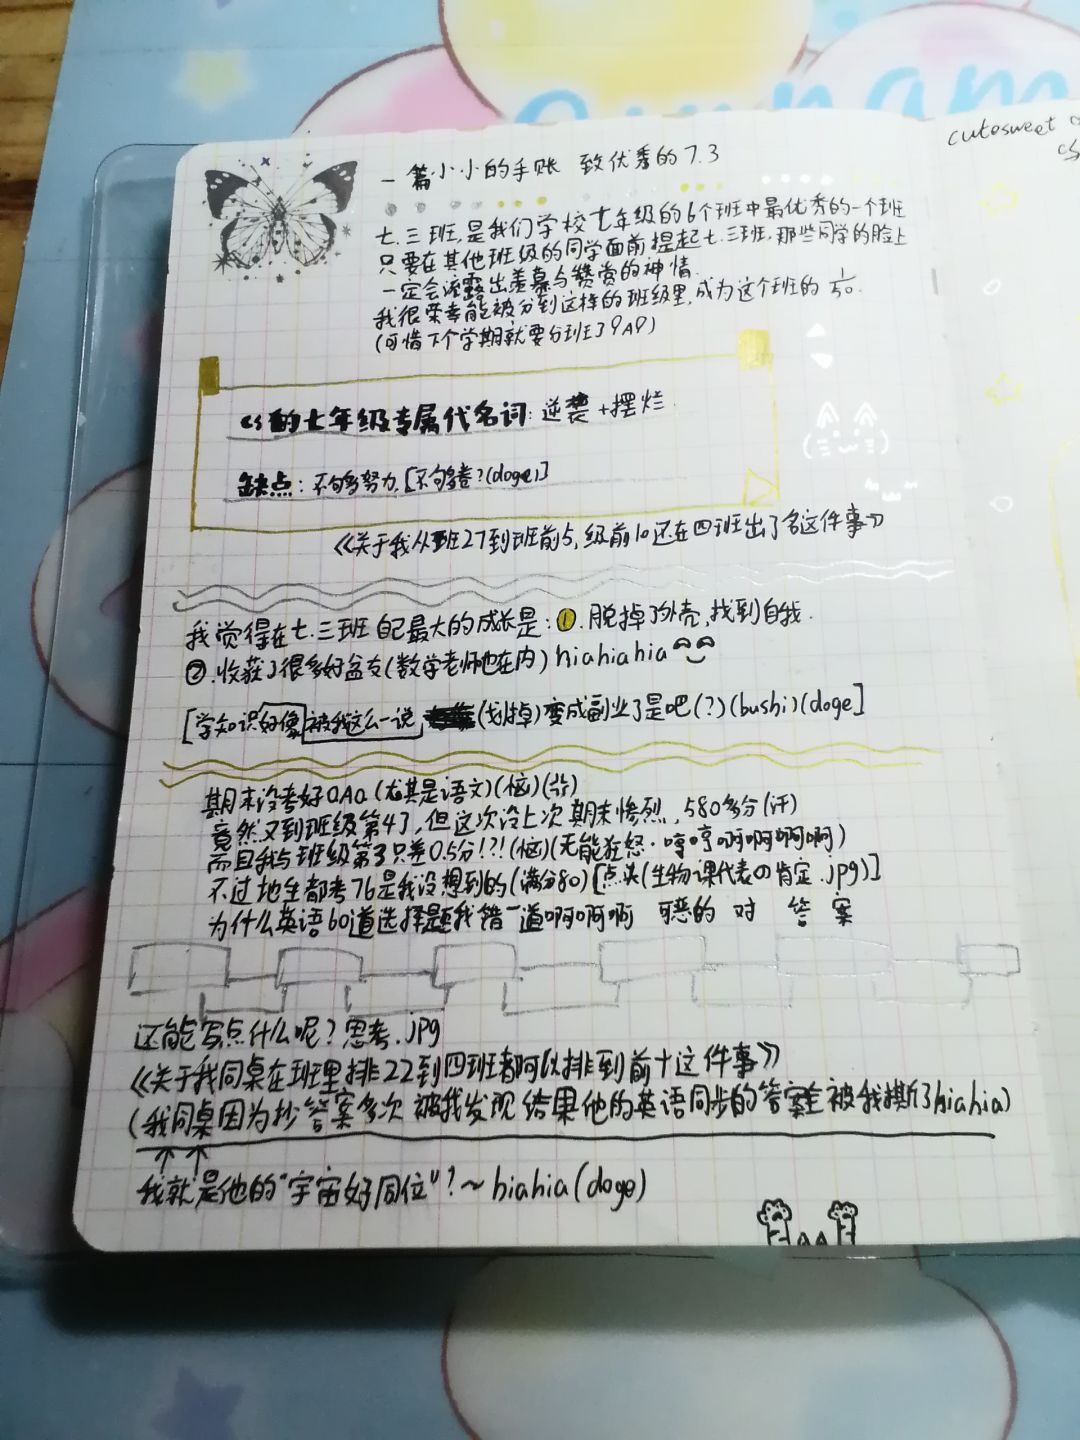 一篇小小的手账 致优秀的7.3
七.三班,是我们学校七年级的6个班中最优秀的一个班
只要在其他班级的同学面前提起七.三班,那些同学的脸上
一定会流露出羡慕与赞赏的神情.
我很荣幸能被分到这样的班级里,成为这个班的 1/50.
(可惜下个学期就要分班了QAQ)
cs的七年级专属代名词:逆袭+摆烂
缺点:不够努力,[不够卷?(doge)]
《关于我从班27到班前5,级前10还在四班出了名这件事》
我觉得在七.三班自己最大的成长是:①.脱掉了外壳,找到自我.
②.收获了很多好盆友(数学老师也在内)hiahiahia
[学知识好像被我这么一说,(划掉)变成副业了是吧(?)(bushi)(doge]
期末没考好QAQ(尤其是语文)(恼)
竟然又到班级第4了,但这次没上次期末惨烈,580多分(汗)
而且我与班级第3只差0.5分!?!(恼)(无能狂怒·哼哼啊啊啊啊)
不过地生都考76是我没想到的(满分80)[点头(生物课代表の肯定.jpg)]
为什么英语60道选择题我错一道啊啊啊 可恶的 对 答 案
还能写点什么呢?思考.jpg
《关于我同桌在班里排22到四班都可以排到前十这件事》
(我同桌因为抄答案多次被我发现结果他的英语同步的答案全被我撕了hiahia)
我就是他的"宇宙好同位"?~hiahia(doge)
cutesweet
cs